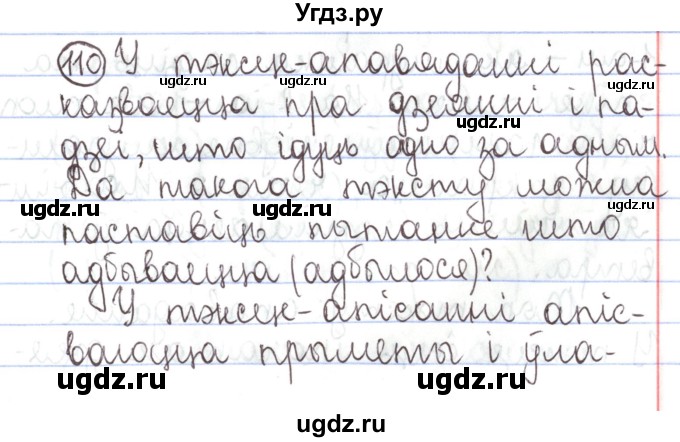 Угдз.ру
110 У тэксце-апавяданні рас-
казваецца пра дзеянні і па-
дзеі, што ідуць адно за адным.
Да такога тэксту можна
паставіць пытанне што
адбываецца (адбылося)?
У тэксце-апісанні апіс-
ваюцца прыметы і ўла-
ugdz.ru
ugdz.ru
ugdz.ru
ugdz.ru
ugdz.ru
ugdz.ru
ugdz.ru
ugdz.ru
ugdz.ru
ugdz.ru
ugdz.ru